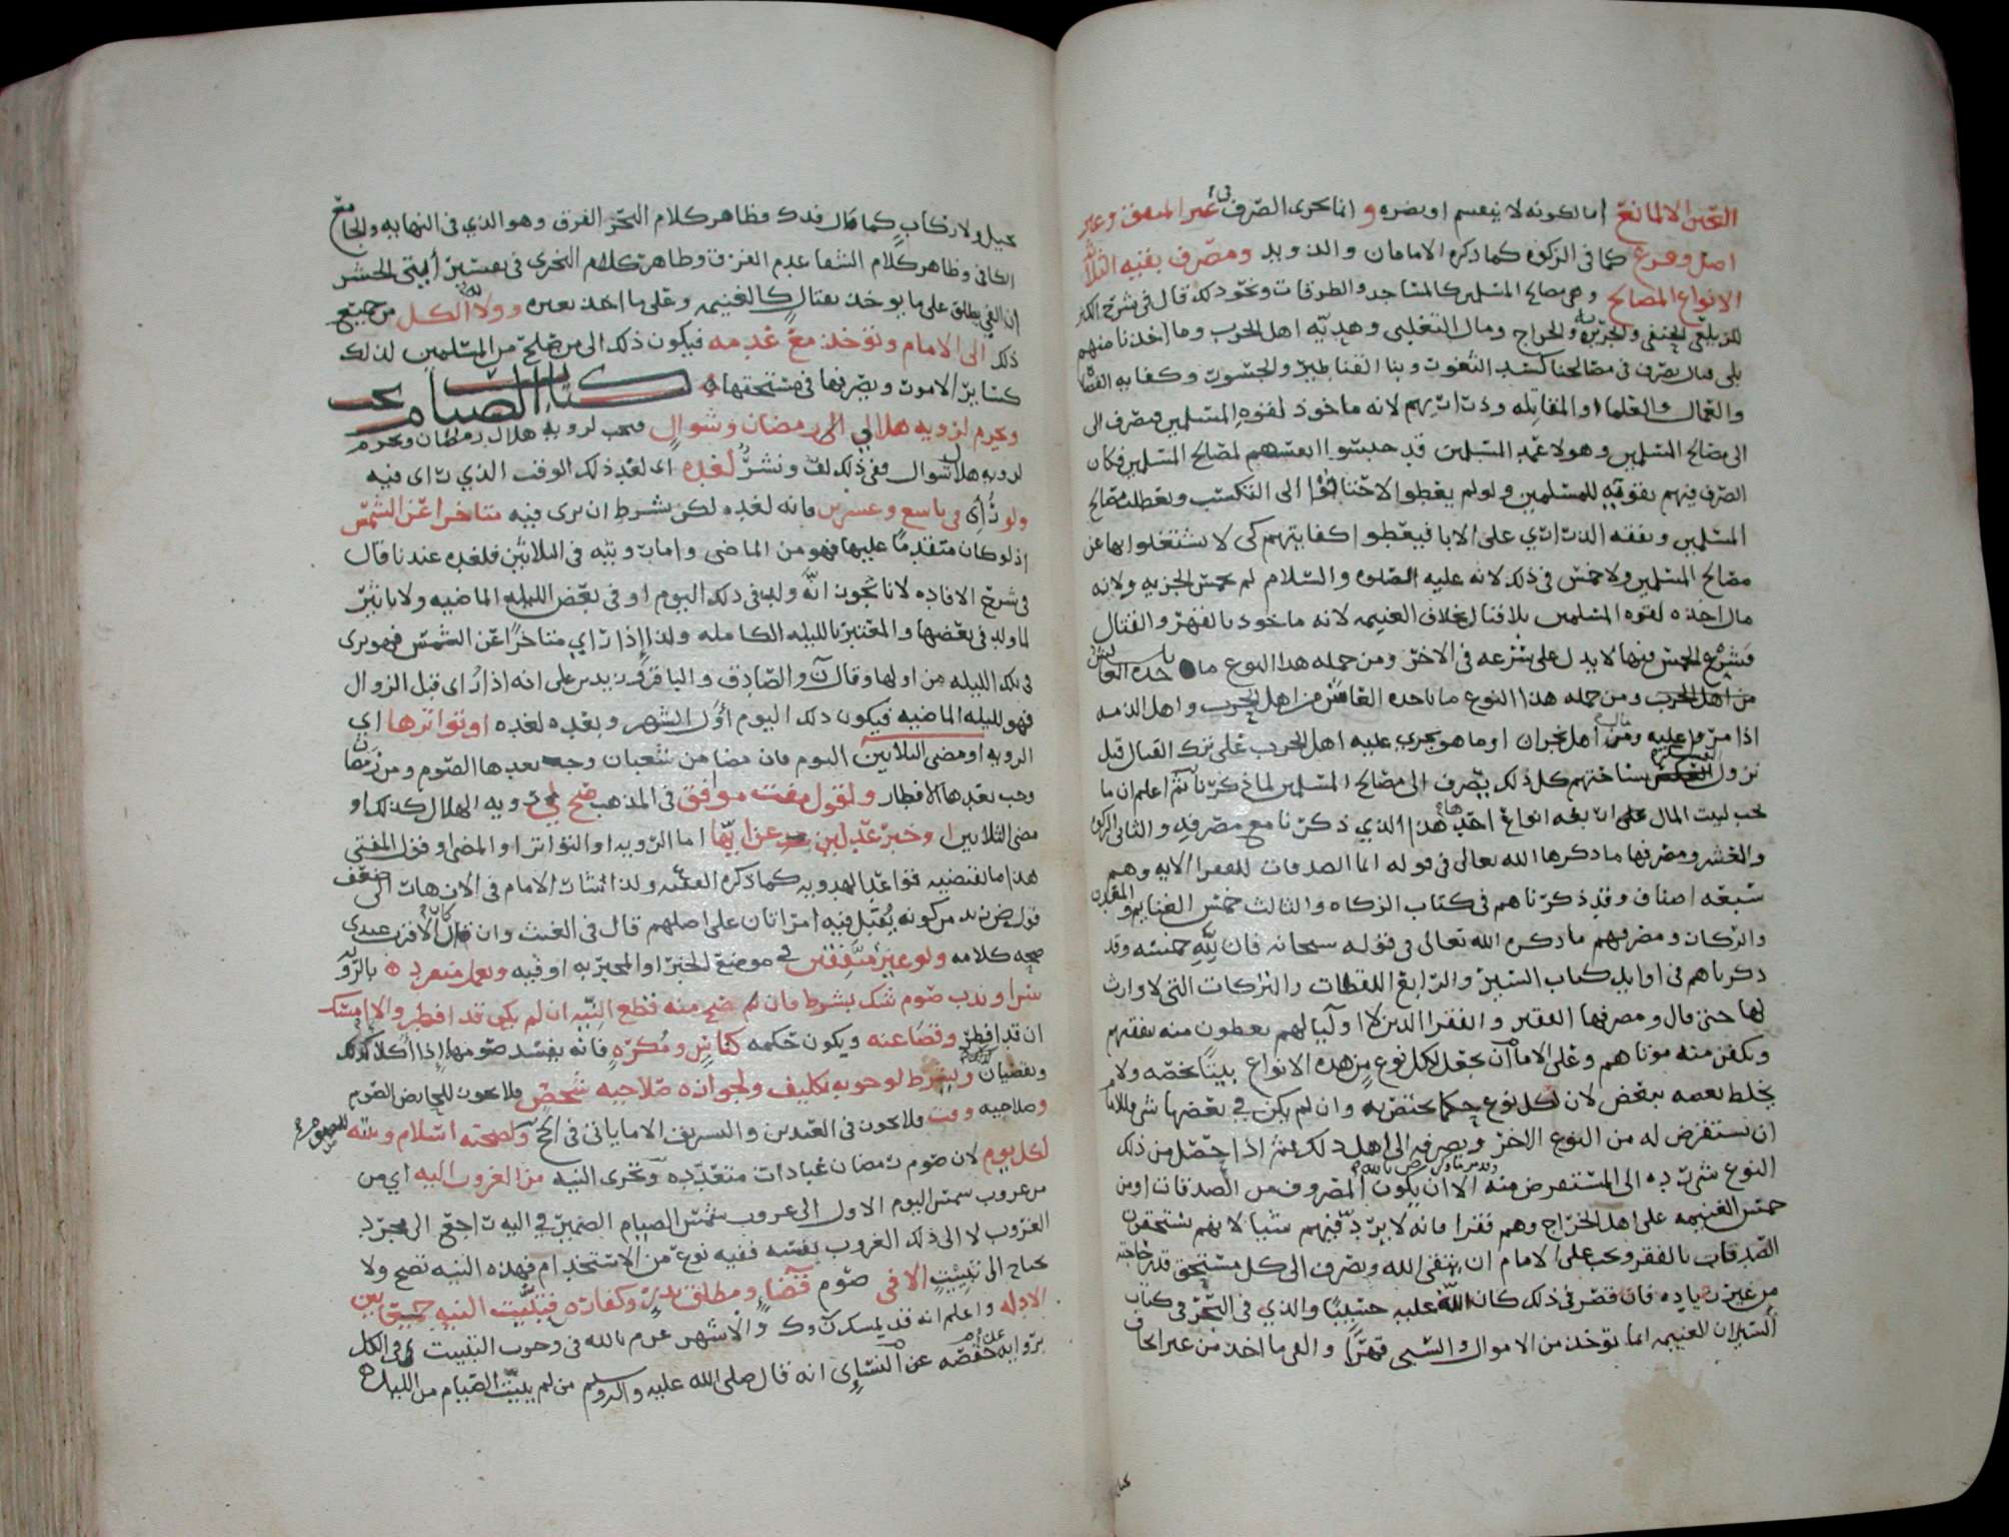 العين الا لمانع اما لكونه لا ينقسم او بضره و انما يجزى الصرف في غير المنفق وغير
اصل وفرع كما في الزكوه كما ذكره الامامان والدويد ومصرف بقيه الثلاثه
الانواع المصالح وهي مصالح المسلمين كالمساجد والطرقات ونحو ذلك قال في شرح الكنز
والجزيه والخراج ومال التغلبي وهديه اهل الحرب وما اخذنا منهم
يصرف في مصالحنا كسد الثغور وبنا القناطير والجسور وكفايه القضاه
والعمال والعلما والمقاتله وذراريهم لانه ماخوذ لقوه المسلمين فيصرف الى
الى مصالح المسلمين وهولا عمد المسلمين قد حبسوا انفسهم لمصالح المسلمين فكان
الصرف فيهم تقويه للمسلمين ولو لم يعطوا لاحتاجوا الى التكسب وتعطلت مصالح
المسلمين ونفقه الذراري على الابا فيعطوا كفايتهم كي لا يشتغلوا بها عن
مصالح المسلمين ولا خمس في ذلك لانه عليه الصلوه والسلام لم يخمس الجزيه ولانه
مال اخذه لقوه المسلمين بلا قتال بخلاف الغنيمه لانه ماخوذ بالقهر والقتال
فشرع الخمس فيها لا يدل على شرعه في الاخر ومن جمله هذا النوع ما ياخذه العاشر
من اهل الحرب ومن جمله هذا النوع ما ياخذه العاشر من اهل الحرب واهل الذمه
اذا مروا عليه ومال اهل نجران او ما هو يجرى عليه اهل الحرب على ترك القتال قبل
نزول العسكر بساحتهم كل ذلك يصرف الى مصالح المسلمين لما ذكرنا ثم اعلم ان ما
يجب لبيت المال على اربعه انواع احدها هذا الذي ذكرنا مع مصرفه والثاني الزكوه
والعشر ومصرفها ما ذكرها الله تعالى في قوله انما الصدقات للفقرا الايه وهم
سبعه اصناف وقد ذكرناهم في كتاب الزكاه والثالث خمس الغنايم والمعدن
والركاز ومصرفهم ما ذكره الله تعالى في قوله سبحانه فان لله خمسه وقد
ذكرناهم في اوايل كتاب السير والرابع اللقطات والتركات التي لا وارث
لها حتى قال ومصرفها الفقير والفقرا الذين لا اوليا لهم يعطون منه نفقتهم
ويكفن منه موتاهم وعلى الامام ان يجعل لكل نوع من هذه الانواع بيتا يخصه ولا
يخلط بعضه ببعض لان لكل نوع حكما يختص به وان لم يكن في بعضها شي فللامام
ان يستقرض له من النوع الاخر ويصرفه الى اهل ذلك ثم اذا حصل من ذلك
النوع شي رده الى المستقرض منه الا ان يكون المصروف من الصدقات او من
خمس الغنيمه على اهل الخراج وهم فقرا فانه لا يرد فيهم شيا لانهم مستحقون
الصدقات بالفقر ويجب على الامام ان يتقي الله ويصرف الى كل مستحق قدر حاجته
من غير زياده فان قصر في ذلك كان الله عليه حسيبا والذي في البحر في كتاب
السير ان الغنيمه انما توخذ من الاموال والسبي قهرا والفي ما اخذ من غير ايجاف
خيل ولا ركاب كما قال فدك وظاهر كلام البحر الفرق وهو الذي في النهايه والجامع
الكافي وظاهر كلام الشفا عدم الفرق وظاهر كلام البحرى في تفسير ايتي الحشر
ان الفي يطلق على ما يوخذ بقتال كالغنيمه وعلى ما اخذ بغيره وولا الكل من جميع
ذلك الى الامام وتوخذ مع عدمه فيكون ذلك الى من صلح من المسلمين لذلك
كسائر الامور ويصرفها في مستحقها
كتاب الصيام يجب
ويحرم لرويه هلالي الى رمضان وشوال فيجب لرويه هلال رمضان ويحرم
لرويه هلال شوال ففي ذلك لف ونشر لغده اى لغد ذلك الوقت الذي راى فيه
ولو رأى في تاسع وعشرين فانه لغده لكن بشرط ان يرى فيه متاخرا عن الشمس
اذ لو كان متقدما عليها فهو من الماضي واما رويته في الثلاثين فلغده عندنا قال
في شرح الافاده لانا نجوز انه ولد في ذلك اليوم او في بعض الليله الماضيه ولا تاثير
لما ولد في بعضها والمعتبر بالليله الكامله ولذا إذا رأي متاخرا عن الشمس فهو يرى
في تلك الليله من اولها وقال ن والصادق والباقر وزيد بن علي انه اذا رُاى قبل الزوال
فهو لليله الماضيه فيكون ذلك اليوم أول الشهر وبعده لغده او تواترها اي
الرويه او مضى الثلاثين اليوم فان مضا من شعبان وجب بعدها الصوم ومن رمضان
وجب بعدها الافطار ولقول مفت موافق في المذهب صح لي رويه الهلال كذلك او
مضى الثلاثين او خبر عدلين عن ايها اما الرويه او التواتر او المضي او قول المفتي
هذا ما تقتضيه قواعد الهدويه كما ذكره الفقيه ولذا اشار الامام في الازهار الى ضعف
قول من كونه يُقبل فيه امراتان على اصلهم قال في الغيث وان كان الاقرب عندى
صحه كلامه ولو غير متفقين في موضع الخبر او المخبر به او فيه ويعمل منفرد بالرويه
سرا وندب صوم شك بشرط فان لم يصح منه قطع النيه ان لم يكن قد افطر والا امسك
ان قد افطر وقضا عنه ويكون حكمه كناس ومكره فانه يفسد صومها إذا اكلا كذلك
ويقضيان ويشرط لوجوبه تكليف ولجوازه صلاحيه شخص فلا يجوز للحايض الصوم
وصلاحيه وقت فلا يجوز في العيدين والتشريق الا ما ياتي في الحج ولصحته اسلام ونيه
لكل يوم لان صوم رمضان عبادات متعدده وتجزى النيه من الغروب اليه اي من
من غروب شمس اليوم الاول الى غروب شمس الصيام الضمير في اليه راجع الى مجرد
الغروب لا الى ذلك الغروب بنفسه ففيه نوع من الاستخدام فهذه النيه تصح ولا
يحتاج الى تبييت الا في صوم قضاء ومطلق نذر وكفاره فتبيت النيه جمعا بين
الادله واعلم انه قد تمسك ن وك والاشهر عدم بالله في وجوب التبييت في الكل
برواية حفصه عن النسائى انه قال صلى الله عليه واله وسلم من لم يبيت الصيام من الليل